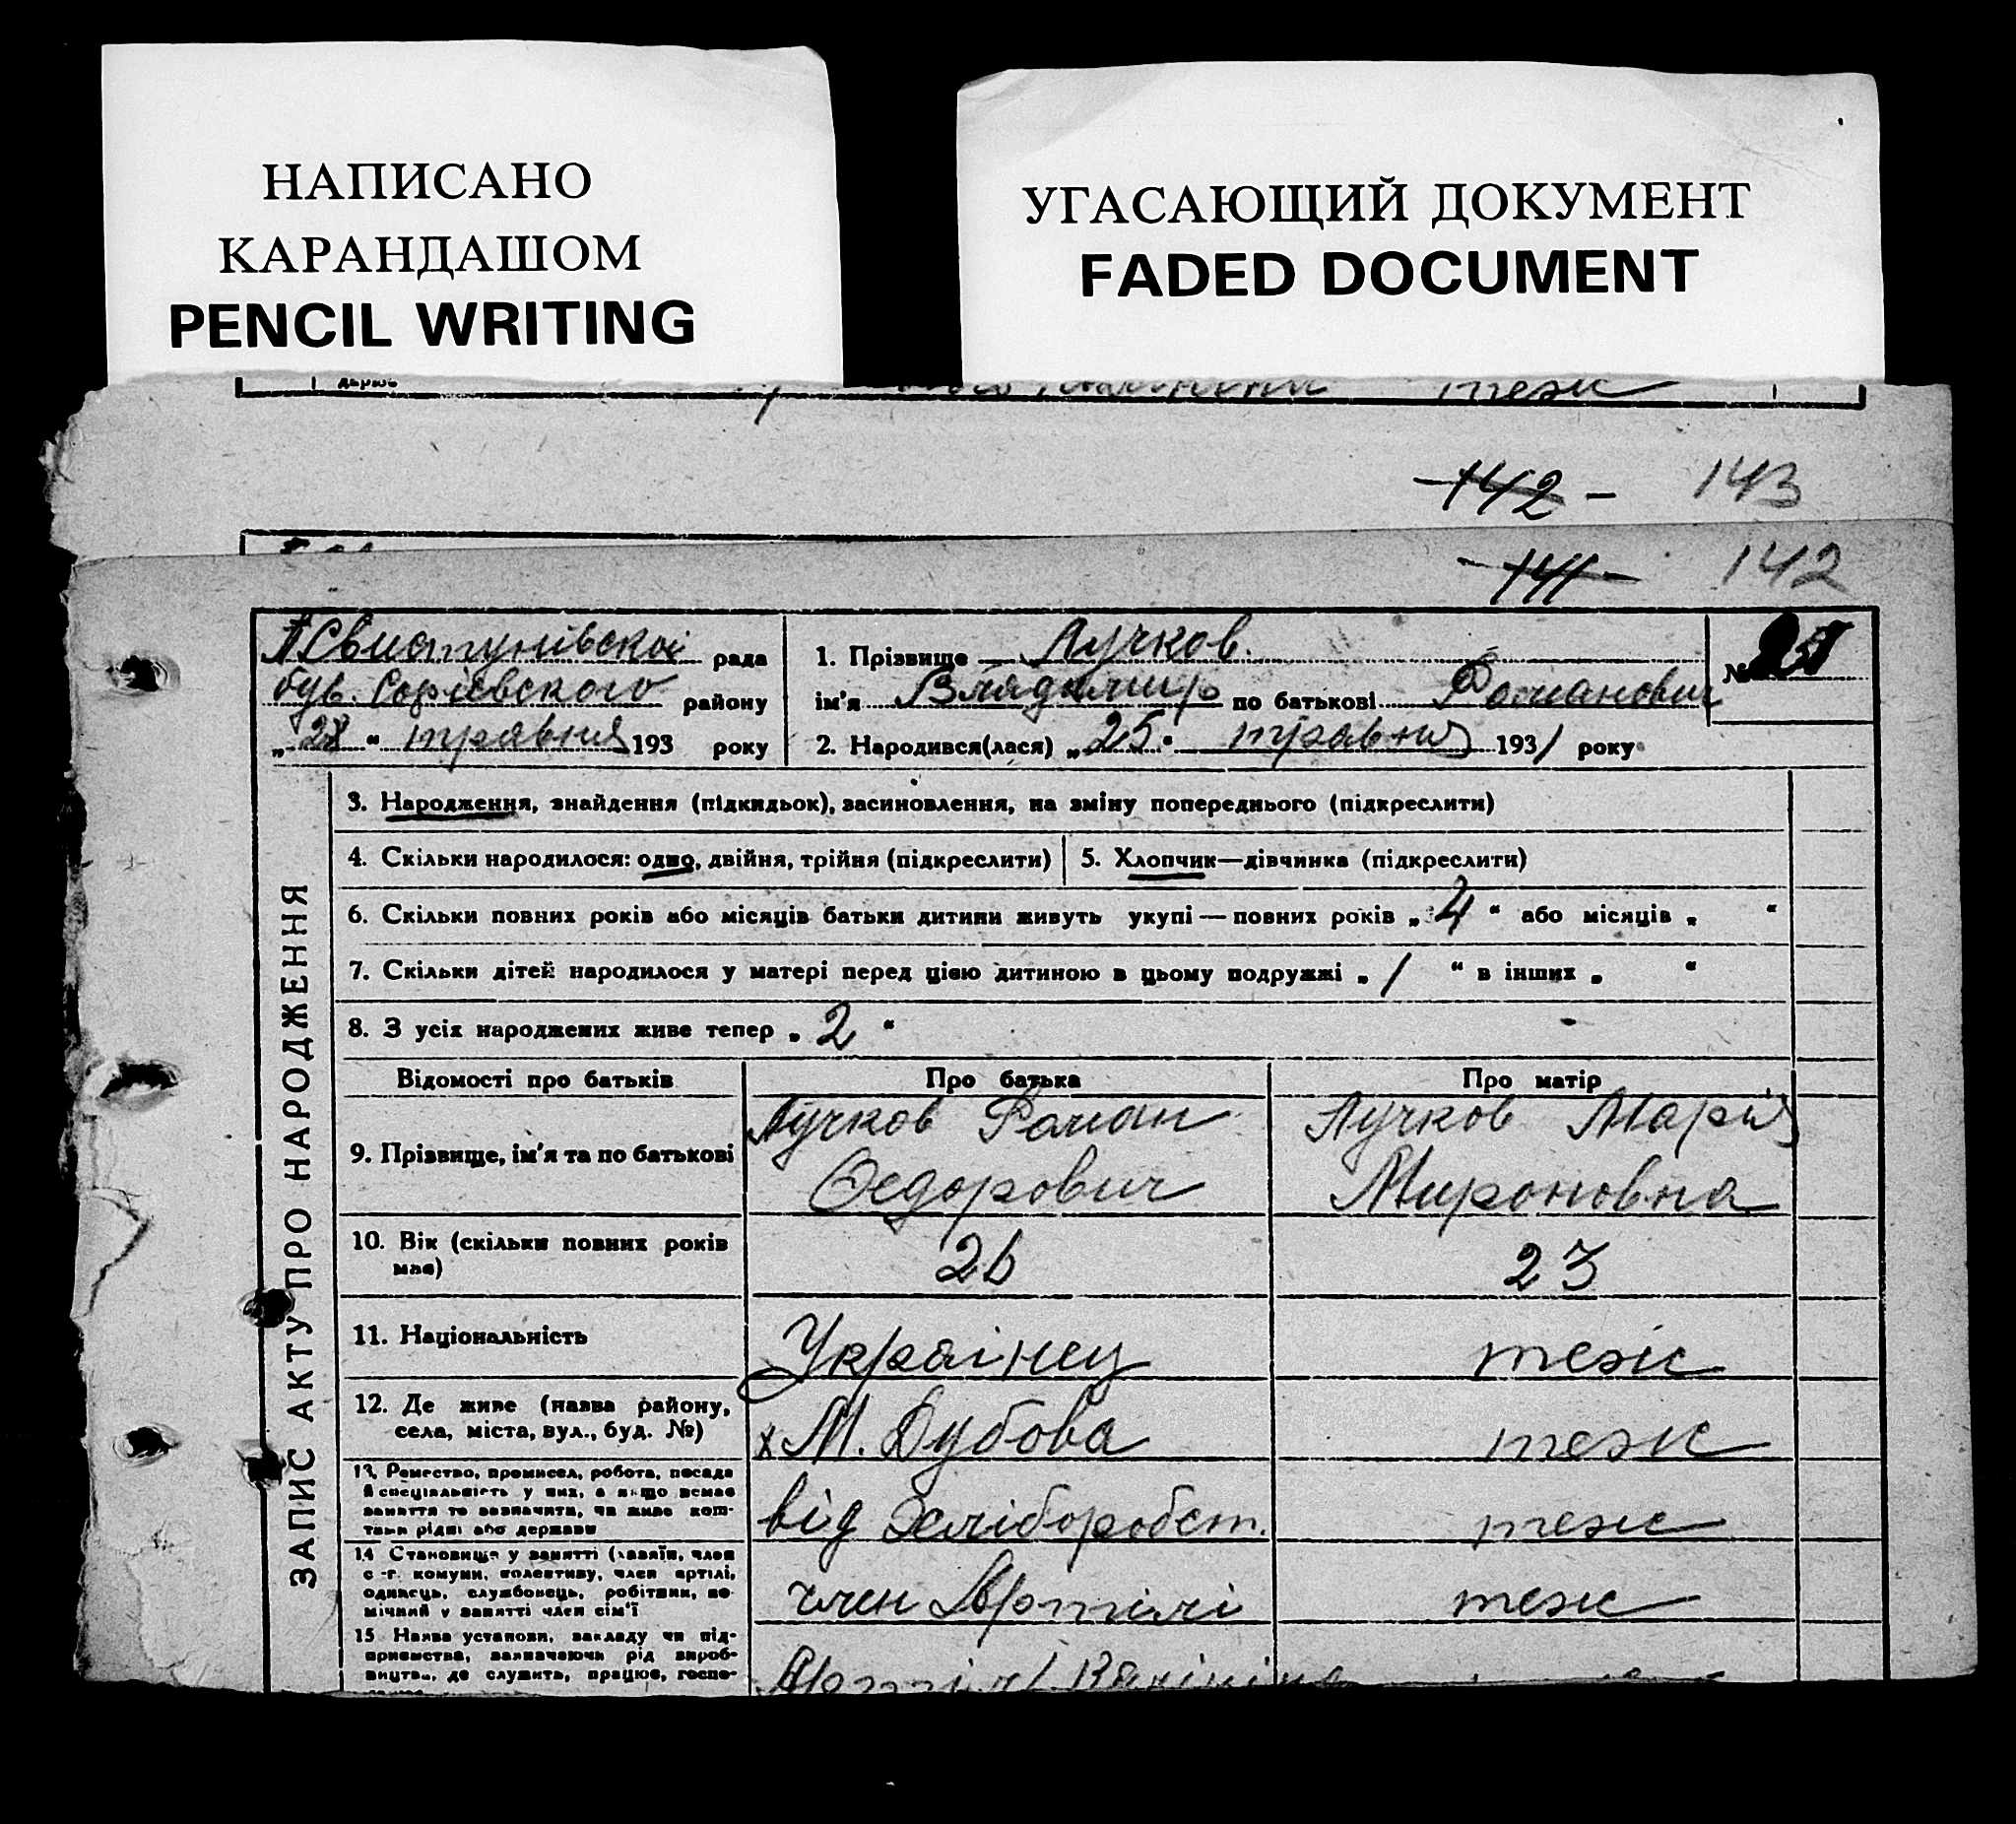 НАПИСАНО
КАРАНДАШОМ
PENCIL WRITING
УГАСАЮЩИЙ ДОКУМЕНТ
FADED DOCUMENT
держ
теж
142 - 143
- 141 - 142
Свистунівскої рада
району
„ 28 “ травня 193 року
1. Прізвище Лучков.
ім'я Владимир по батькові Романович
2. Народився(лася) „ 25 “ травня 1931 року
№
ЗАПИС АКТУ ПРО НАРОДЖЕННЯ
3. Народження, знайдення (підкидьок), засиновлення, на зміну попереднього (підкреслити)
4. Скільки народилося: одно, двійня, трійня (підкреслити)
5. Хлопчик—дівчинка (підкреслити)
6. Скільки повних років або місяців батьки дитини живуть укупі — повних років „ 4 “ або місяців „ “
7. Скільки дітей народилося у матері перед цією дитиною в цьому подружжі „ 1 “ в інших „ “
8. З усіх народжених живе тепер „ 2 “
Відомості про батьків
Про батька
Про матір
9. Прізвище, ім'я та по батькові
Лучков Роман
Федорович
Лучков Марія
Мироновна
10. Вік (скільки повних років
має)
26
23
11. Національність
Українец
теж
12. Де живе (назва району,
села, міста, вул., буд. №)
х М. Дубова
теж
13. Ремество, промисел, робота, посада
й спеціальність у них, а якщо немає
заняття то зазначити, чи живе кош-
тами рідні або держави
від хліборобст.
теж
14 Становище у занятті (хазяїн, член
с-г. комуни, колективу, член артілі,
одинець, службовець, робітник, по-
мічний у занятті член сім'ї
член Артілі
теж
15 Назва установи, закладу чи під-
приємства, зазначаючи рід вироб-
ництва, де служить, працює, госпо-